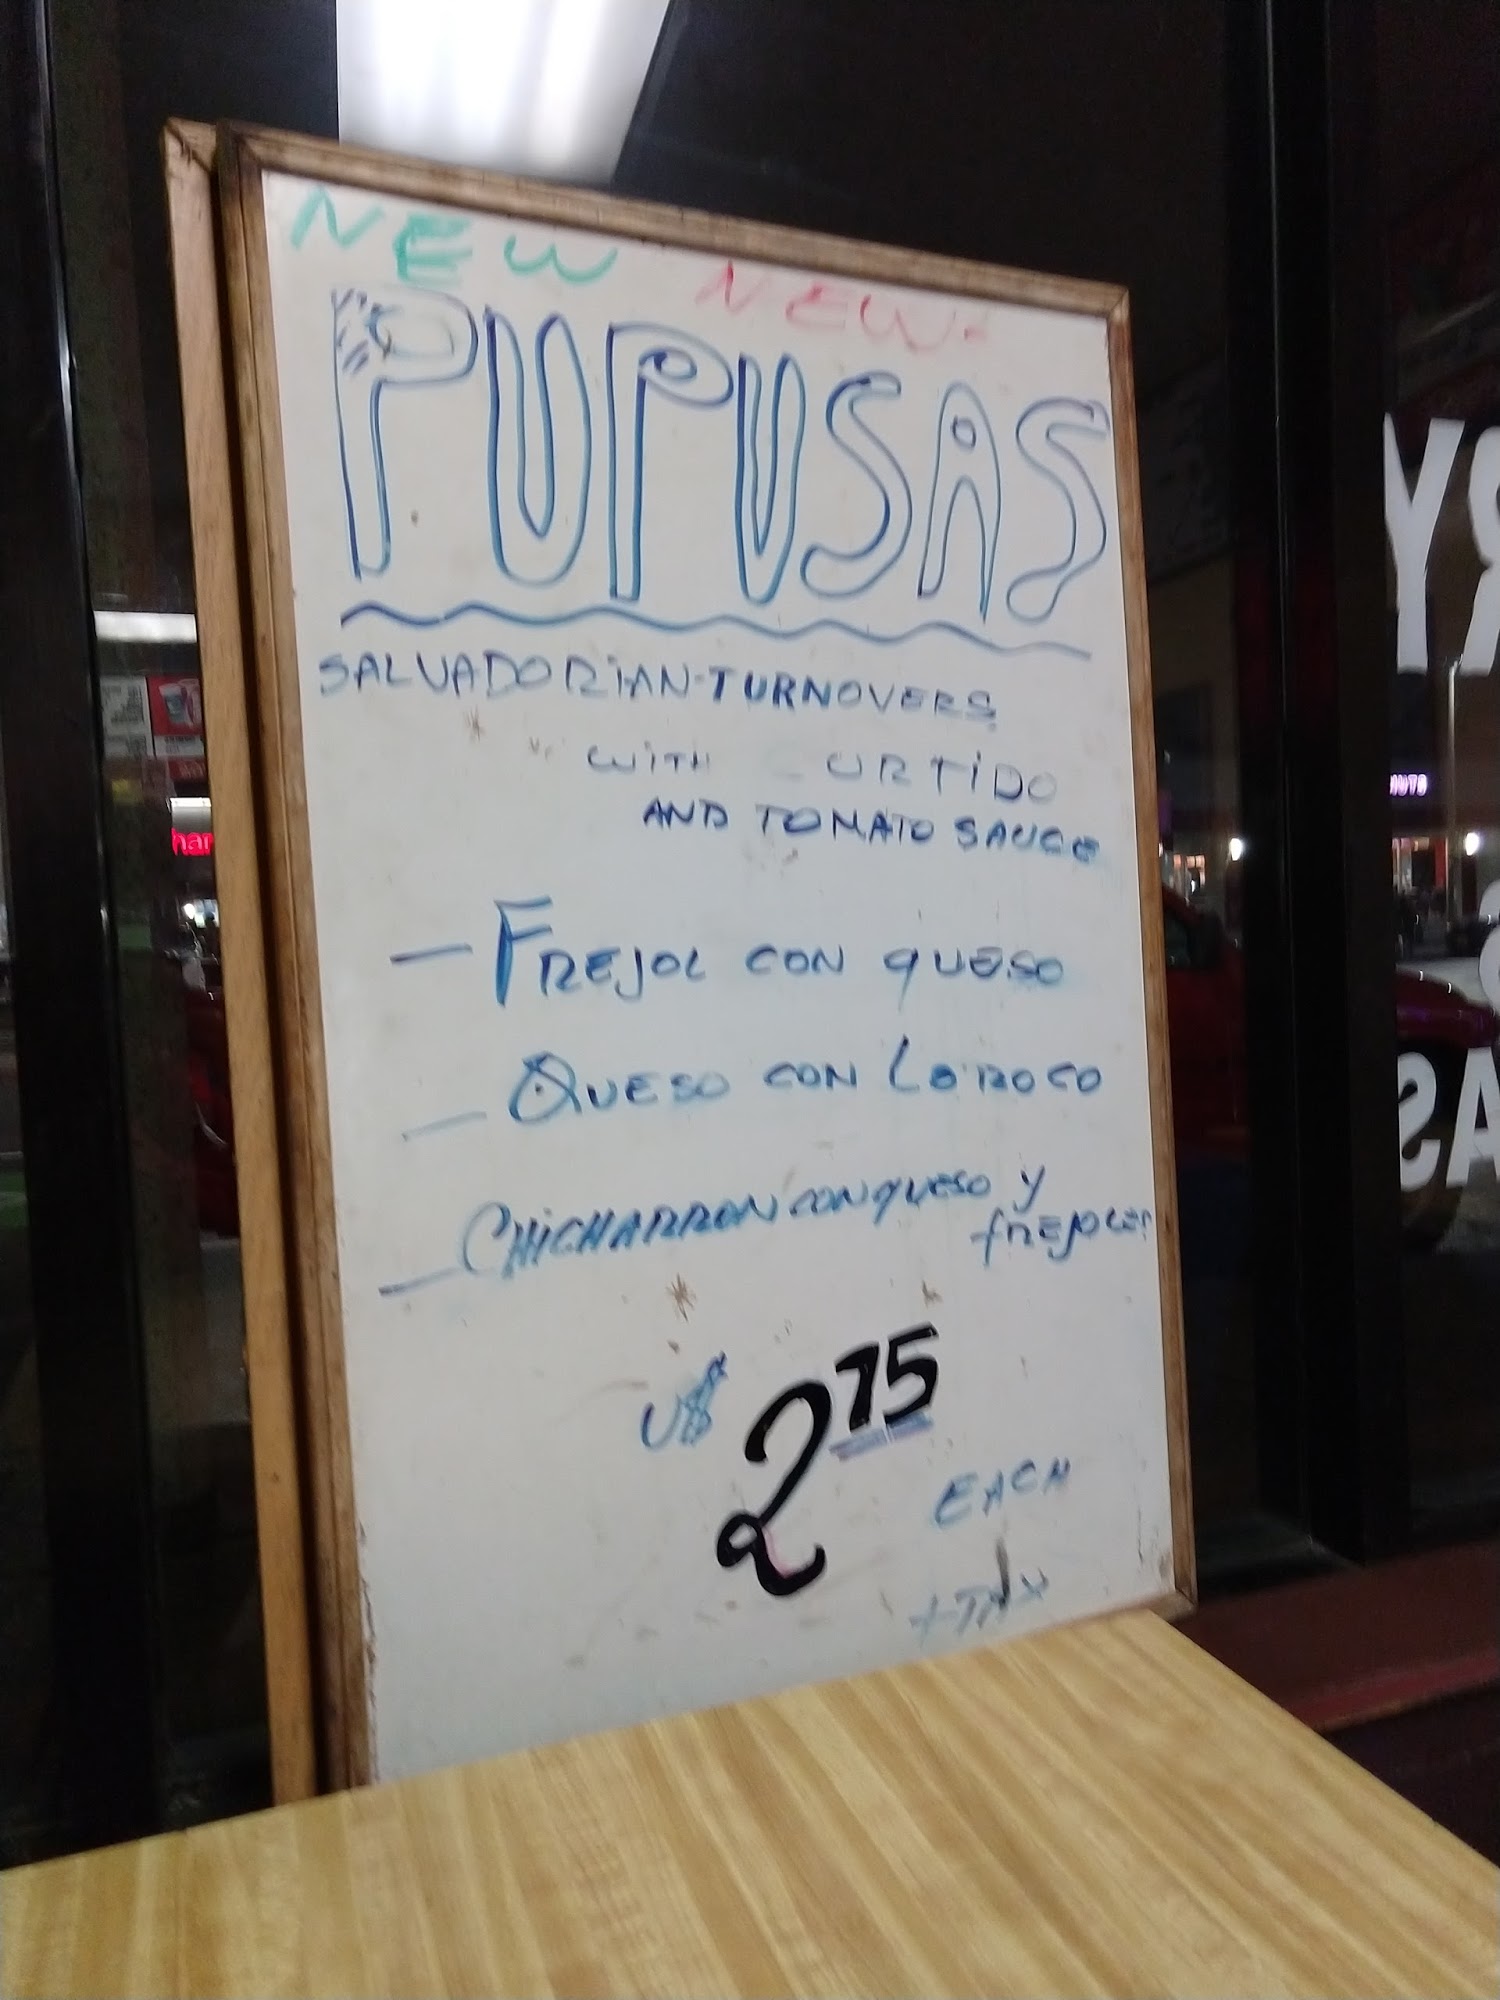 NEW NEW
PUPUSAS
SALVADORIAN-TURNOVERS
WITH CURTIDO
AND TOMATO SAUCE
— FREJOL CON QUESO
— QUESO CON LOROCO
— CHICHARRON CON QUESO Y
FREJOLES
U$ 2 75
EACH
+ TAX